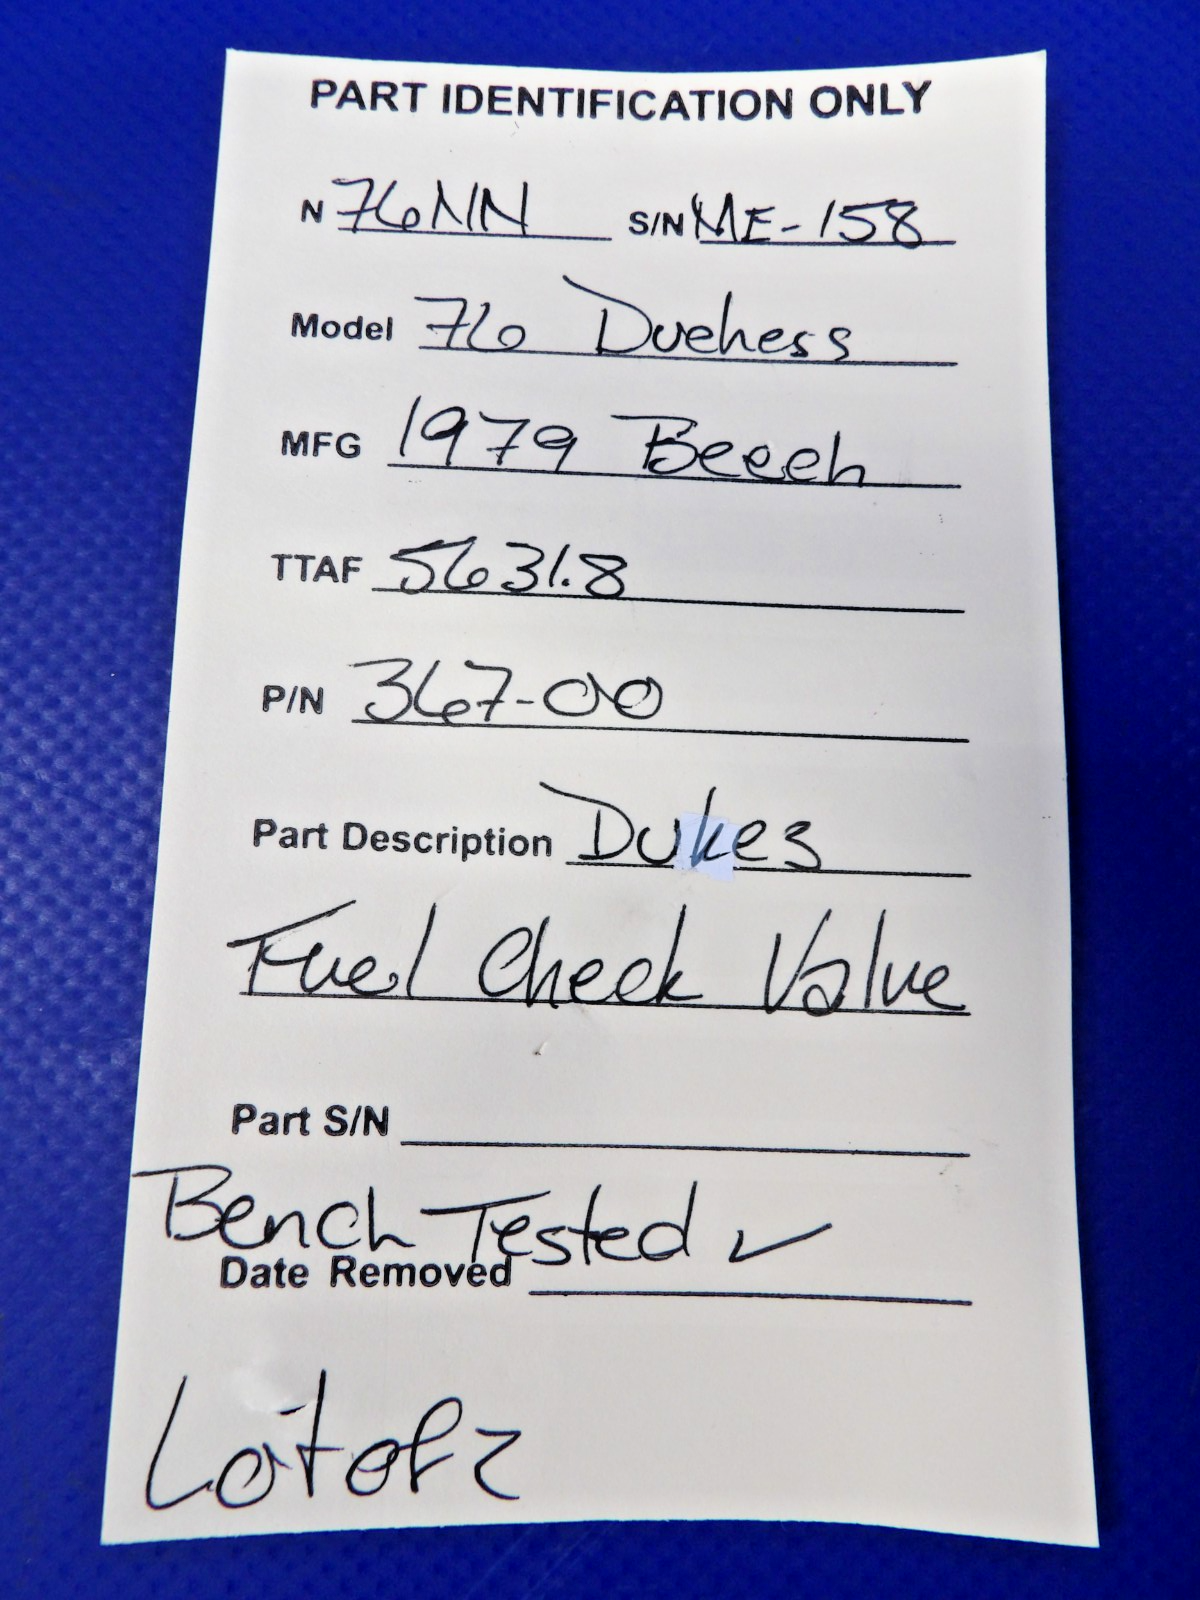 PART IDENTIFICATION ONLY
N 76NN S/N ME-158
Model 76 Duchess
MFG 1979 Beech
TTAF 5631.8
P/N 367-00
Part Description Dukes
Fuel Check Valve
Part S/N
Bench Tested ✓
Date Removed
Lot of 2